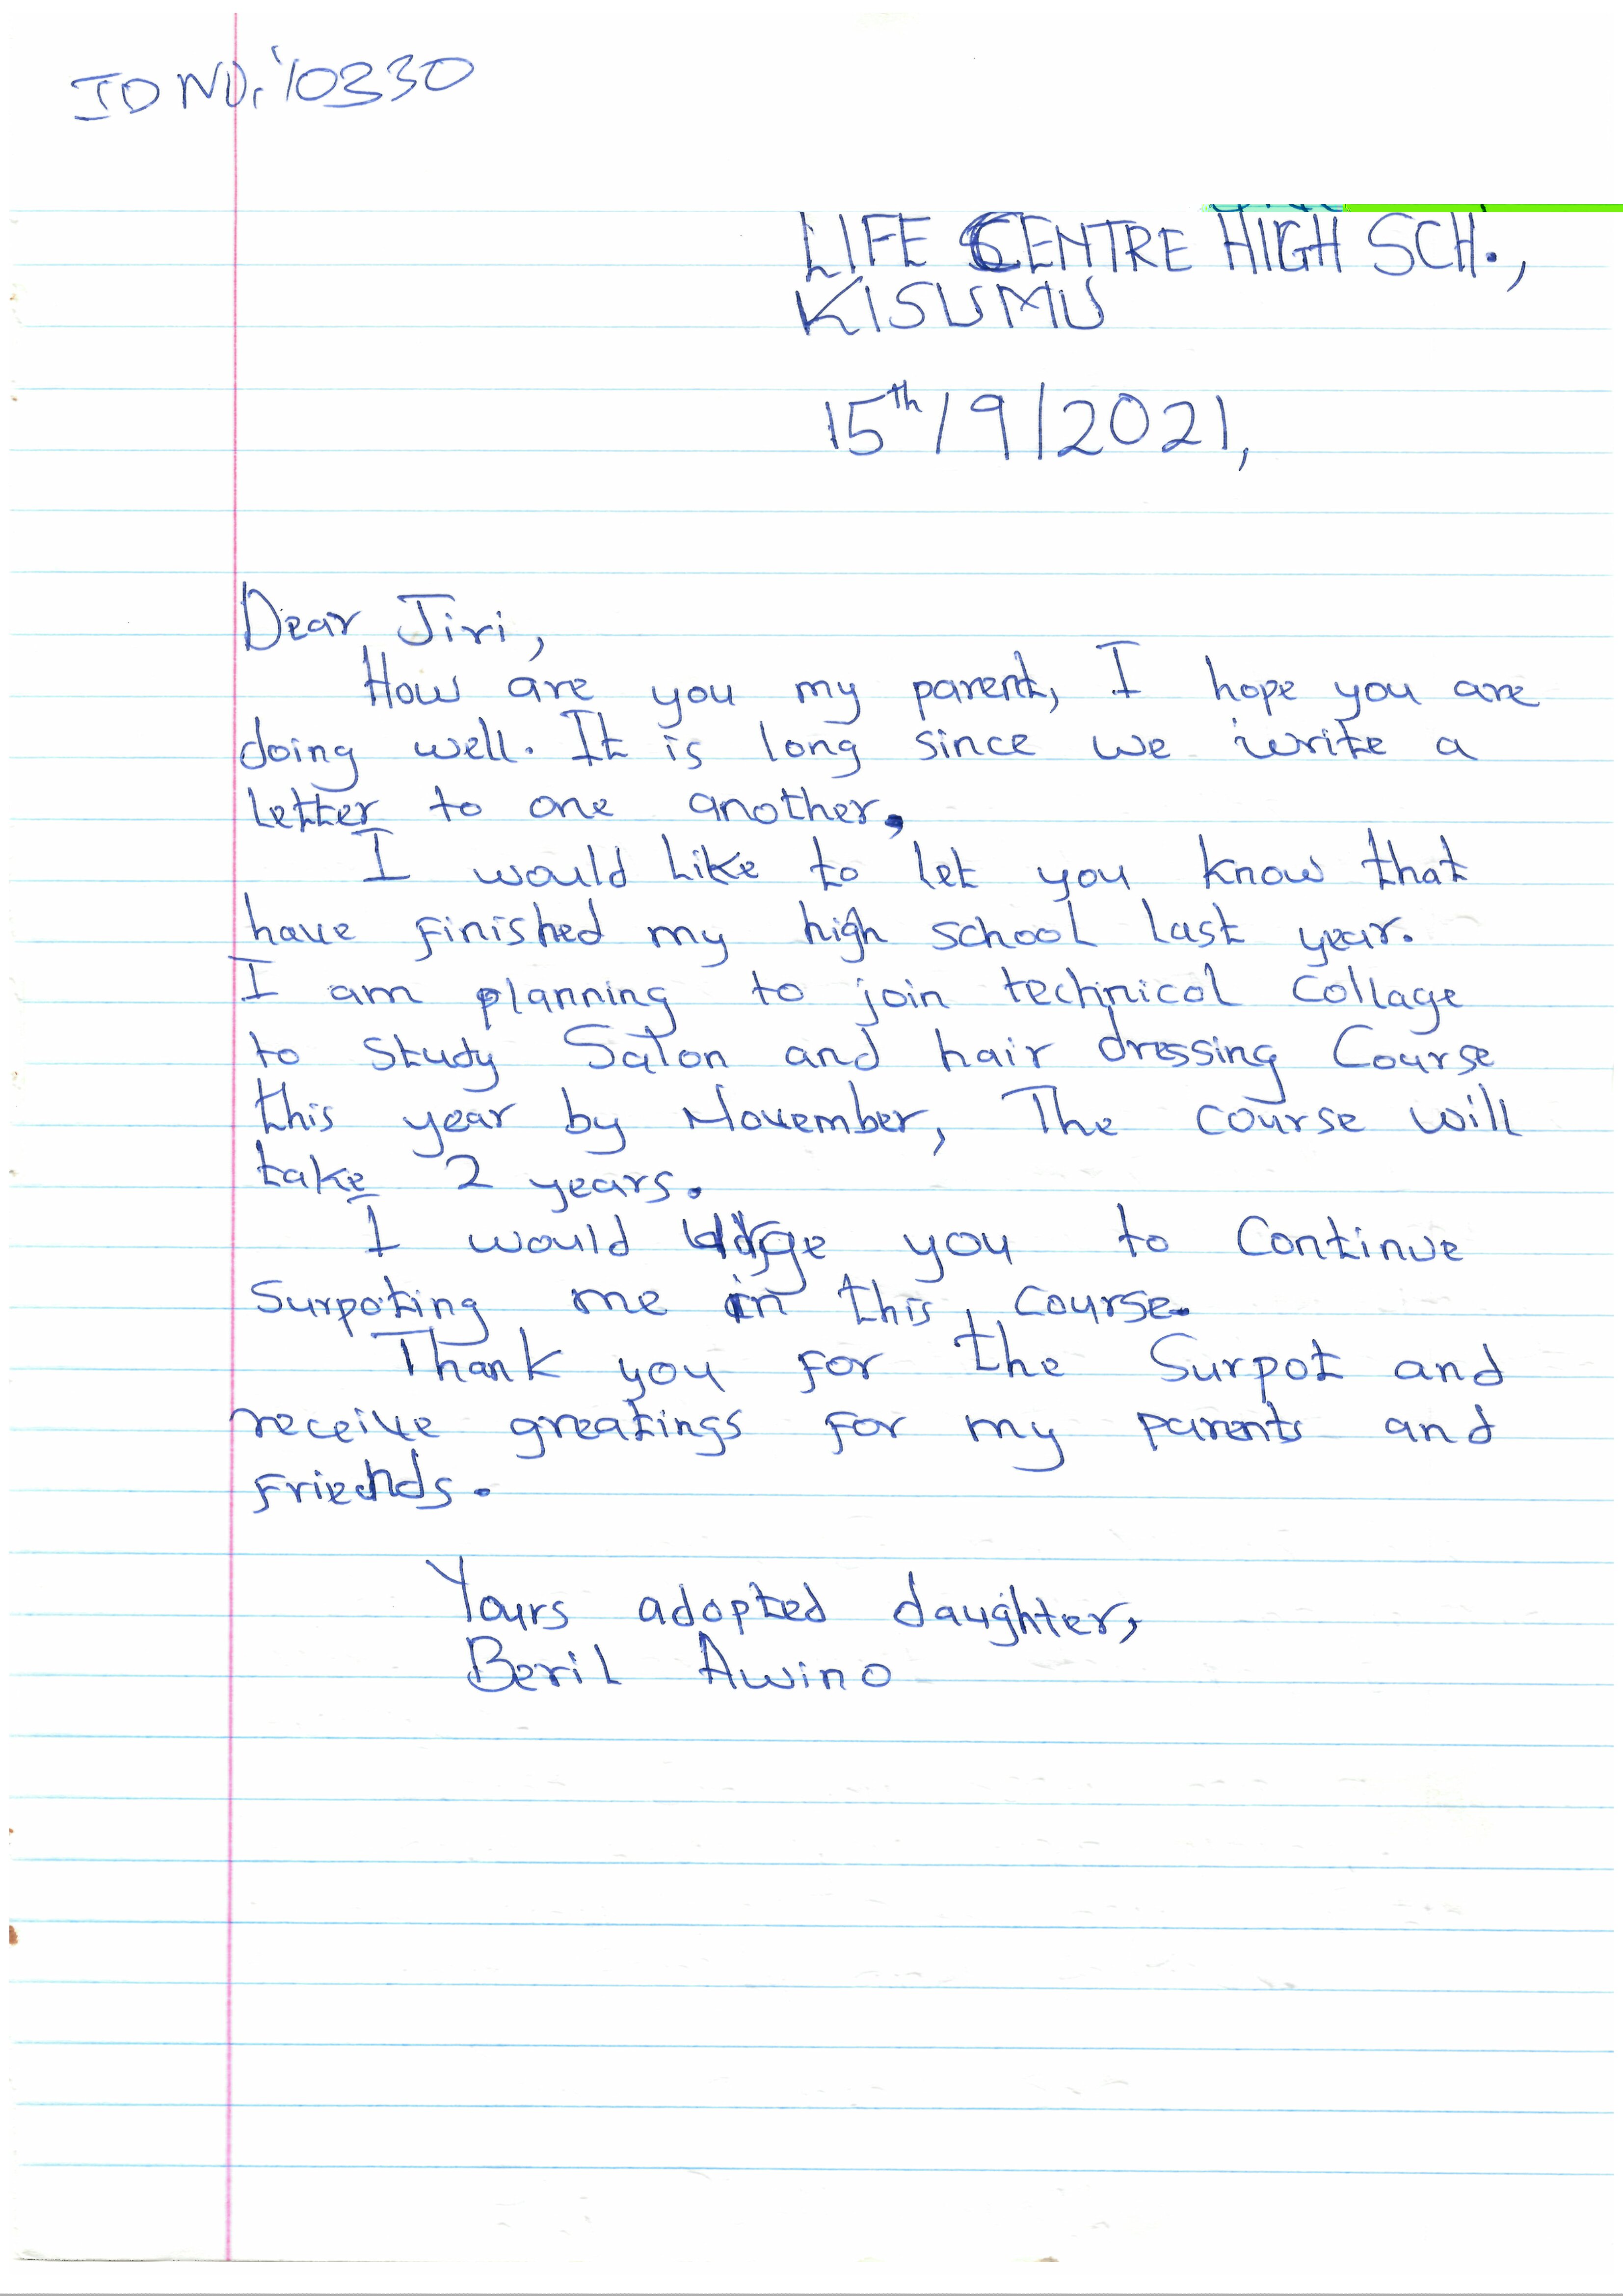 ID NO: 10330
LIFE CENTRE HIGH SCH.,
KISUMU
15th/9/2021,
Dear Jiri,
How are you my parent, I hope you are
doing well. It is long since we write a
letter to one another,
I would like to let you know that
have finished my high school last year.
I am planning to join technical collage
to study Salon and hair dressing Course
this year by November, The course will
take 2 years.
I would urge you to Continue
Surpoting me in this course.
Thank you for the Surpot and
receive greatings for my parents and
Friends.
Yours adopted daughter,
Beril Awino